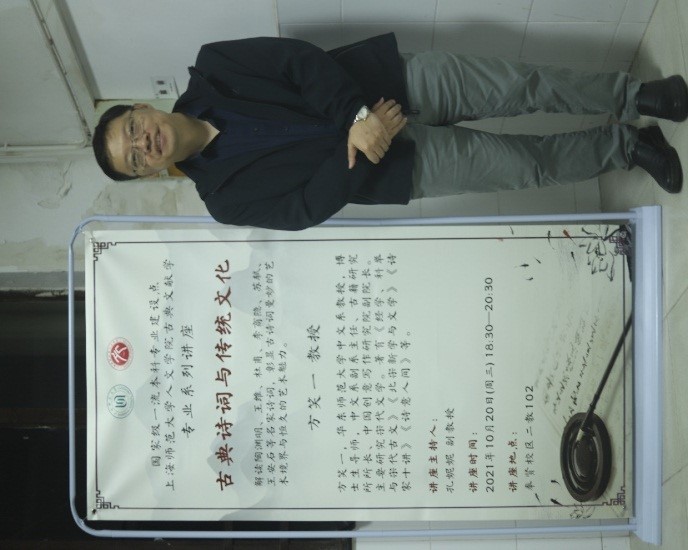 国家级一流本科专业建设点
上海师范大学人文学院古典文献学
专业系列讲座
古典诗词与传统文化
解读陶渊明、王维、杜甫、李商隐、苏轼、
王安石等名家诗词，彰显古诗词曼妙的艺
术境界与恒久的艺术魅力。
方笑一 教授
方笑一，华东师范大学中文系教授，博
士生导师，中文系副系主任、古籍研究
所所长、中国创意写作研究院副院长。
主要研究宋代文学。著有《经学、科举
与宋代古文》《北宋新学与文学》《诗
家十讲》《诗意人间》等。
讲座主持人：
孔妮妮 副教授
讲座时间：
2021年10月20日(周三) 18:30—20:30
讲座地点：
奉贤校区二教102